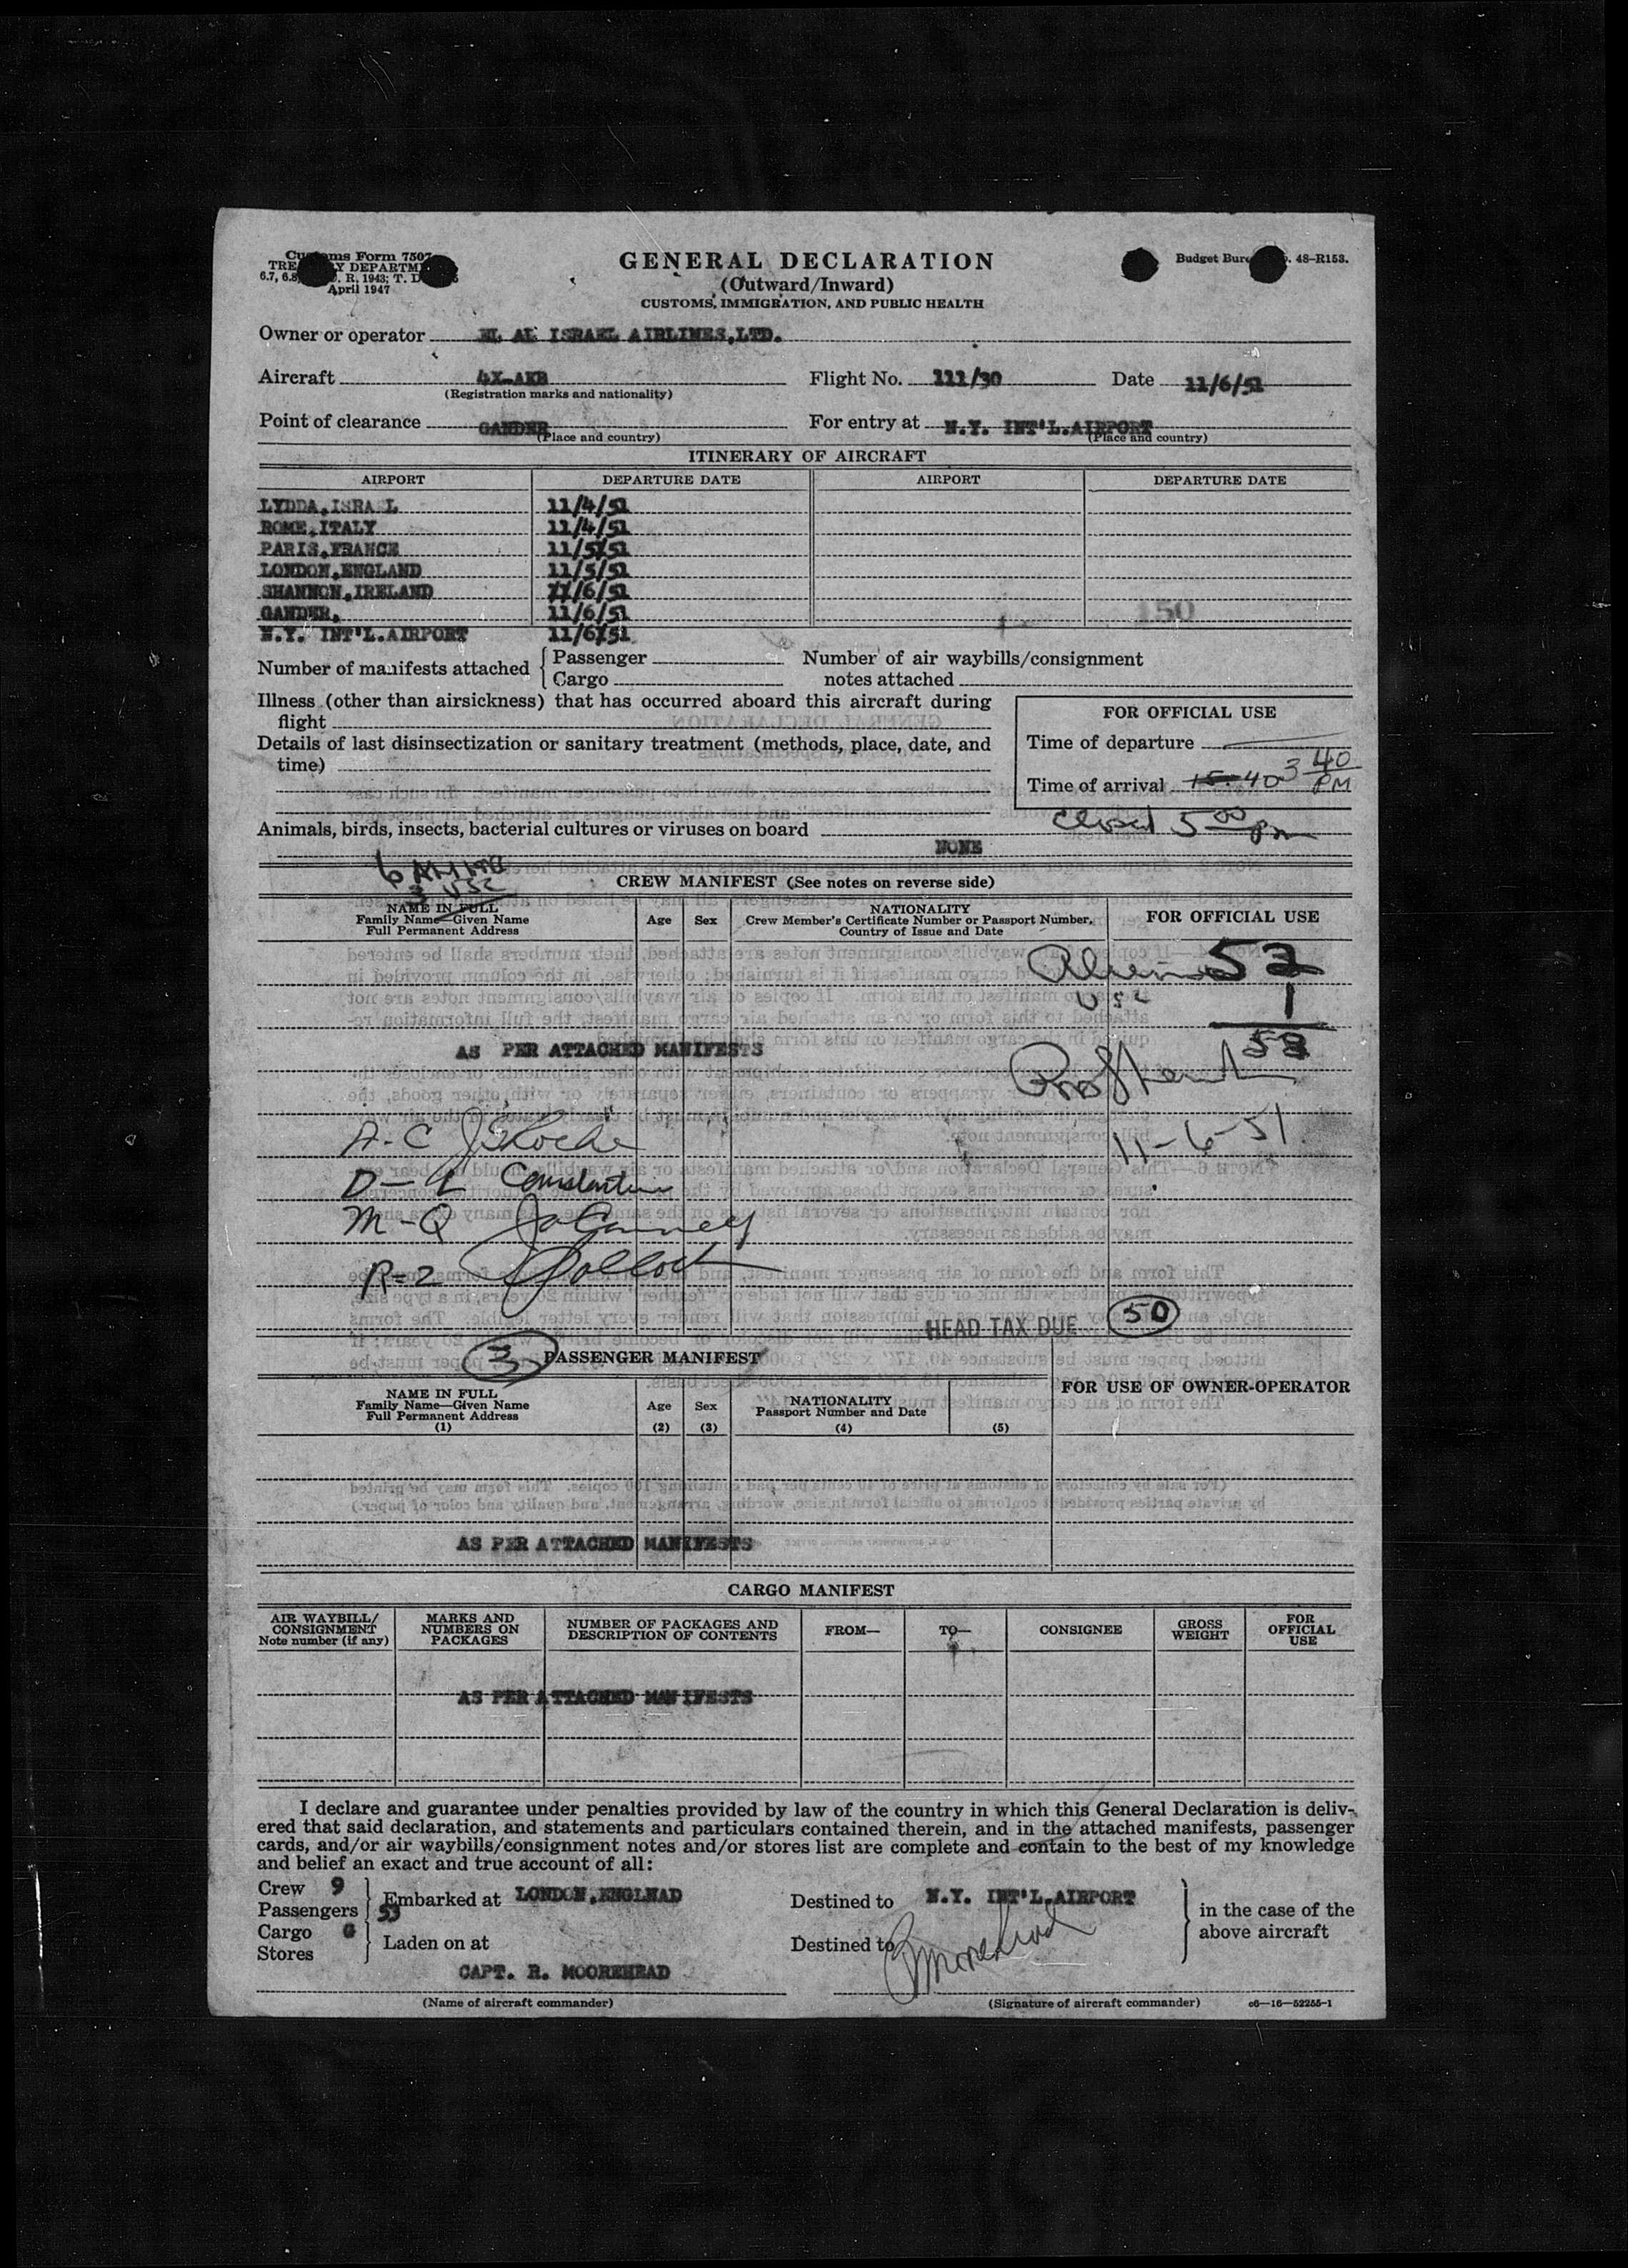 Customs Form 7507
TREASURY DEPARTMENT
6.7, 6.8, R. 1943; T. D.
April 1947
GENERAL DECLARATION
(Outward/Inward)
CUSTOMS, IMMIGRATION, AND PUBLIC HEALTH
Budget Bureau No. 48-R153.
Owner or operator EL AL ISRAEL AIRLINES,LTD.
Aircraft 4X-AKB Flight No. 111/30 Date 11/6/51
(Registration marks and nationality)
Point of clearance GANDER For entry at N.Y. INT'L.AIRPORT
(Place and country) (Place and country)
ITINERARY OF AIRCRAFT
AIRPORT DEPARTURE DATE AIRPORT DEPARTURE DATE
LYDDA,ISRAEL 11/4/51
ROME,ITALY 11/4/51
PARIS,FRANCE 11/5/51
LONDON,ENGLAND 11/5/51
SHANNON,IRELAND 11/6/51
GANDER, 11/6/51 150
N.Y. INT'L.AIRPORT 11/6/51
Number of manifests attached { Passenger Number of air waybills/consignment
Cargo notes attached
Illness (other than airsickness) that has occurred aboard this aircraft during
flight
Details of last disinsectization or sanitary treatment (methods, place, date, and
time)
FOR OFFICIAL USE
Time of departure
Time of arrival 15:40 3 40 PM
Closed 5 00 pm
Animals, birds, insects, bacterial cultures or viruses on board
NONE
6
3 USC
CREW MANIFEST (See notes on reverse side)
NAME IN FULL
Family Name—Given Name
Full Permanent Address
Age Sex
NATIONALITY
Crew Member's Certificate Number or Passport Number,
Country of Issue and Date
FOR OFFICIAL USE
Aliens 52
USC 1
53
AS PER ATTACHED MANIFESTS
A-C Roche
11-6-51
D-L Constantine
M-Q
R-Z Pollock
HEAD TAX DUE 50
3
PASSENGER MANIFEST
NAME IN FULL
Family Name—Given Name
Full Permanent Address
(1)
Age
(2)
Sex
(3)
NATIONALITY
Passport Number and Date
(4) (5)
FOR USE OF OWNER-OPERATOR
AS PER ATTACHED MANIFESTS
CARGO MANIFEST
AIR WAYBILL/
CONSIGNMENT
Note number (if any)
MARKS AND
NUMBERS ON
PACKAGES
NUMBER OF PACKAGES AND
DESCRIPTION OF CONTENTS
FROM—
TO—
CONSIGNEE
GROSS
WEIGHT
FOR
OFFICIAL
USE
AS PER ATTACHED MANIFESTS
I declare and guarantee under penalties provided by law of the country in which this General Declaration is deliv-
ered that said declaration, and statements and particulars contained therein, and in the attached manifests, passenger
cards, and/or air waybills/consignment notes and/or stores list are complete and contain to the best of my knowledge
and belief an exact and true account of all:
Crew 9
Passengers 53
Embarked at LONDON,ENGLNAD Destined to N.Y. INT'L.AIRPORT
in the case of the
above aircraft
Cargo G
Stores
Laden on at Destined to
CAPT. R. MOOREHEAD
R Moorehead
(Name of aircraft commander) (Signature of aircraft commander) c6—16—52255-1